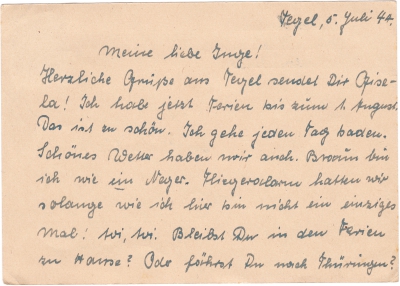 Tegel, 5. Juli 40.
Meine liebe Inge!
Herzliche Grüße aus Tegel sendet Dir Gise-
la! Ich habe jetzt Ferien bis zum 1. August.
Das ist zu schön. Ich gehe jeden Tag baden.
Schönes Wetter haben wir auch. Braun bin
ich wie ein Neger. Fliegeralarm hatten wir
solange wie ich hier bin nicht ein einziges
Mal! toi, toi. Bleibst Du in den Ferien
zu Hause? Oder fährst Du nach Thüringen?